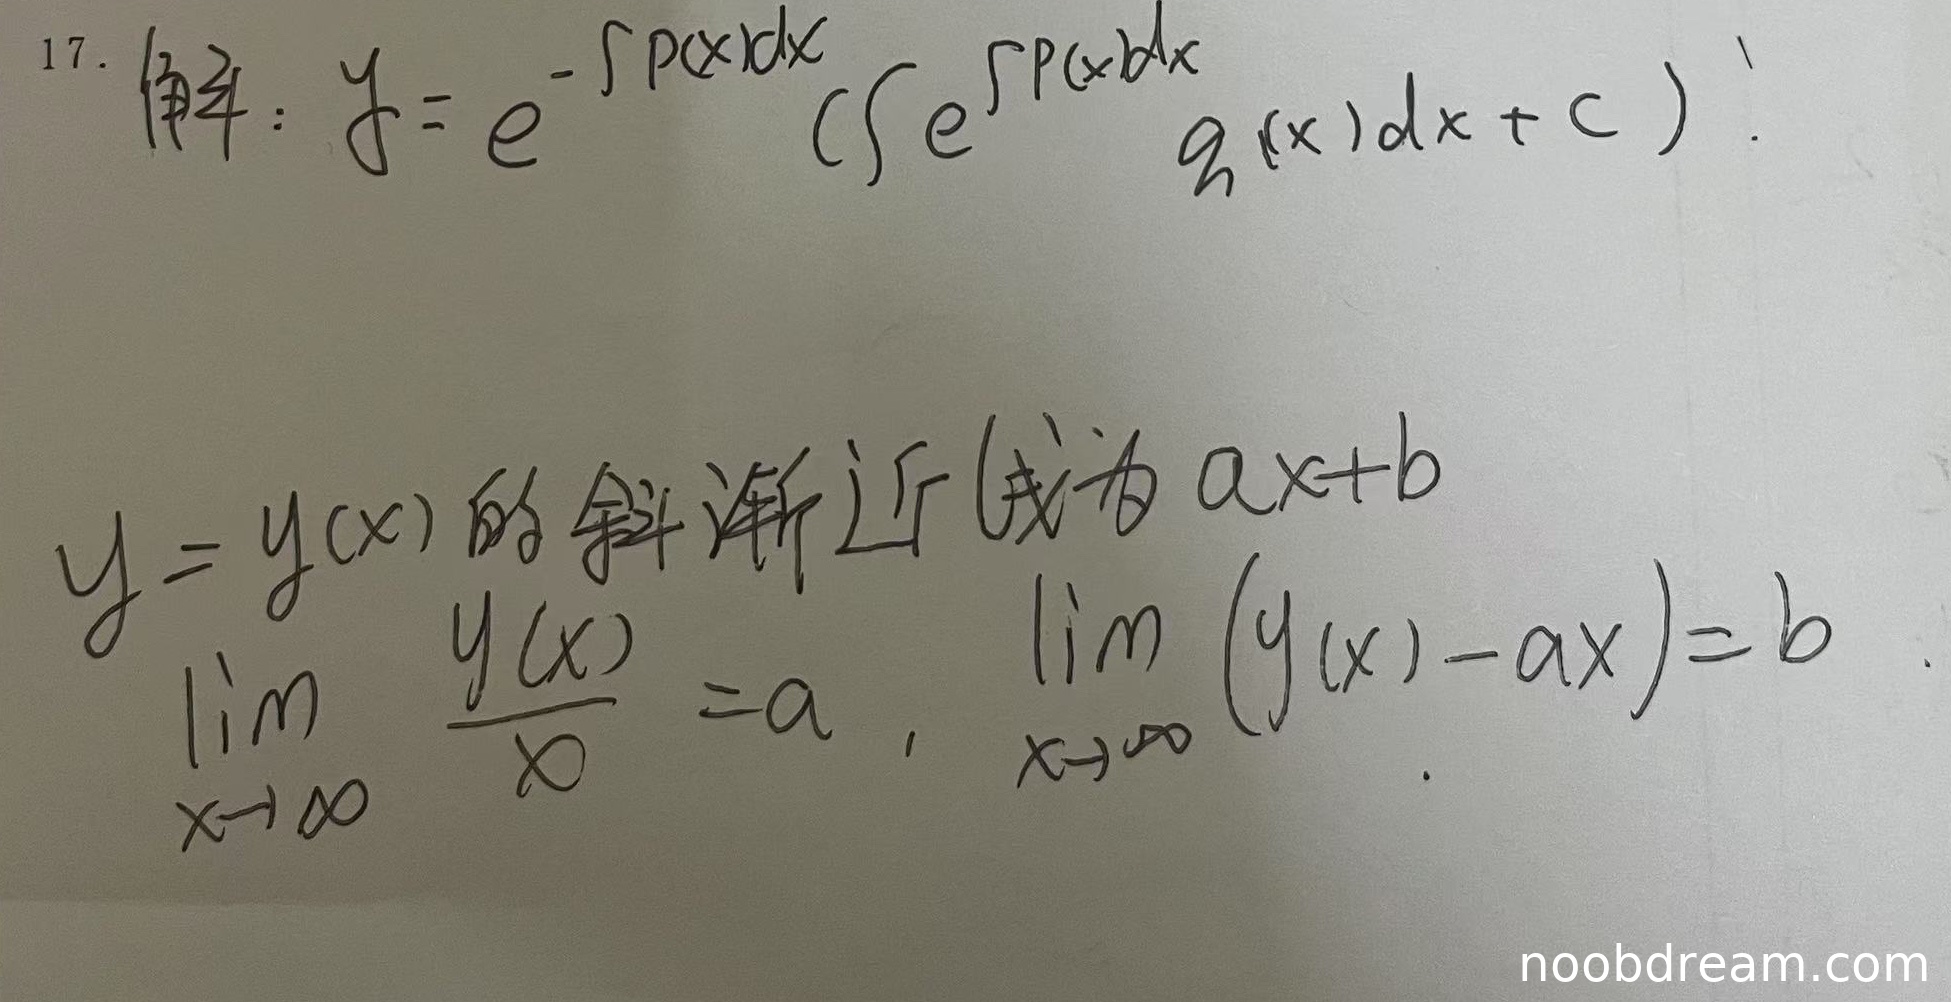 17. 解: y = e^{-∫P(x)dx} (∫ e^{∫P(x)dx} q(x)dx + c)
y = y(x) 的斜渐近线为 ax+b
lim_{x→∞} y(x)/x = a , lim_{x→∞} (y(x) - ax) = b .
noobdream.com